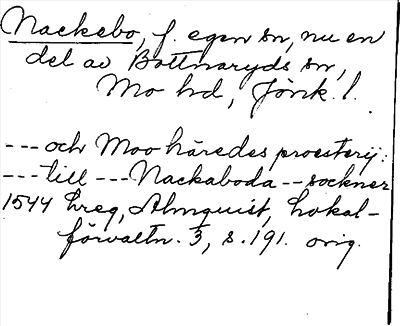 Nackebo, f. egen sn, nu en
del av Bottnaryds sn,
Mo hd, Jönk. l.
--- och Moo häredes proesterij:
--- till --- Nackaboda -- sockner
1544 hreg, Almquist, Lokal-
förvaltn. 3, s. 191. orig.